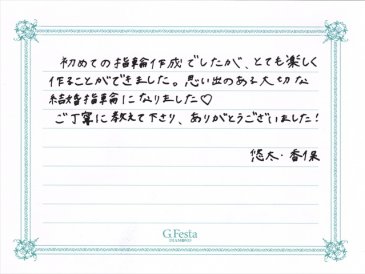 初めての指輪作成でしたが、とても楽しく
作ることができました。思い出のある大切な
結婚指輪になりました♡
ご丁寧に教えて下さり、ありがとうございました!
悠太・香保
G.Festa
DIAMOND